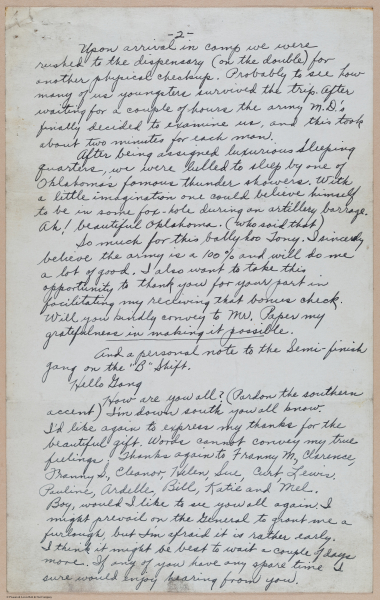 -2-
Upon arrival in camp we were
rushed to the dispensary (on the double) for
another physical checkup. Probably to see how
many of us youngsters survived the trip. After
waiting for a couple of hours the army M.D's
finally decided to examine us, and this took
about two minutes for each man.
After being assigned luxurious sleeping
quarters, we were lulled to sleep by one of
Oklahoma's famous thunder showers. With
a little imagination one could believe himself
to be in some fox-hole during an artillery barrage.
Ah! beautiful Oklahoma. (Who said that)
So much for this ballyhoo Tony. I sincerely
believe the army is a 100% and will do me
a lot of good. I also want to take this
opportunity to thank you for your part in
facilitating my receiving that bonus check.
Will you kindly convey to Mr. Paper my
gratefulness in making it possible.
And a personal note to the Semi-finish
gang on the "B" Shift.
Hello Gang
How are you all? (Pardon the southern
accent) I'm down south you all know.
I'd like again to express my thanks for the
beautiful gift. Words cannot convey my true
feelings. Thanks again to Franny M, Clarence,
Franny S, Eleanor, Helen, Sue, Curt, Lewis,
Pauline, Ardelle, Bill, Katie and Mel.
Boy, would I like to see you all again. I
might prevail on the General to grant me a
furlough, but I'm afraid it is rather early.
I think it might be best to wait a couple of days
more. If any of you have any spare time I
sure would enjoy hearing from you.